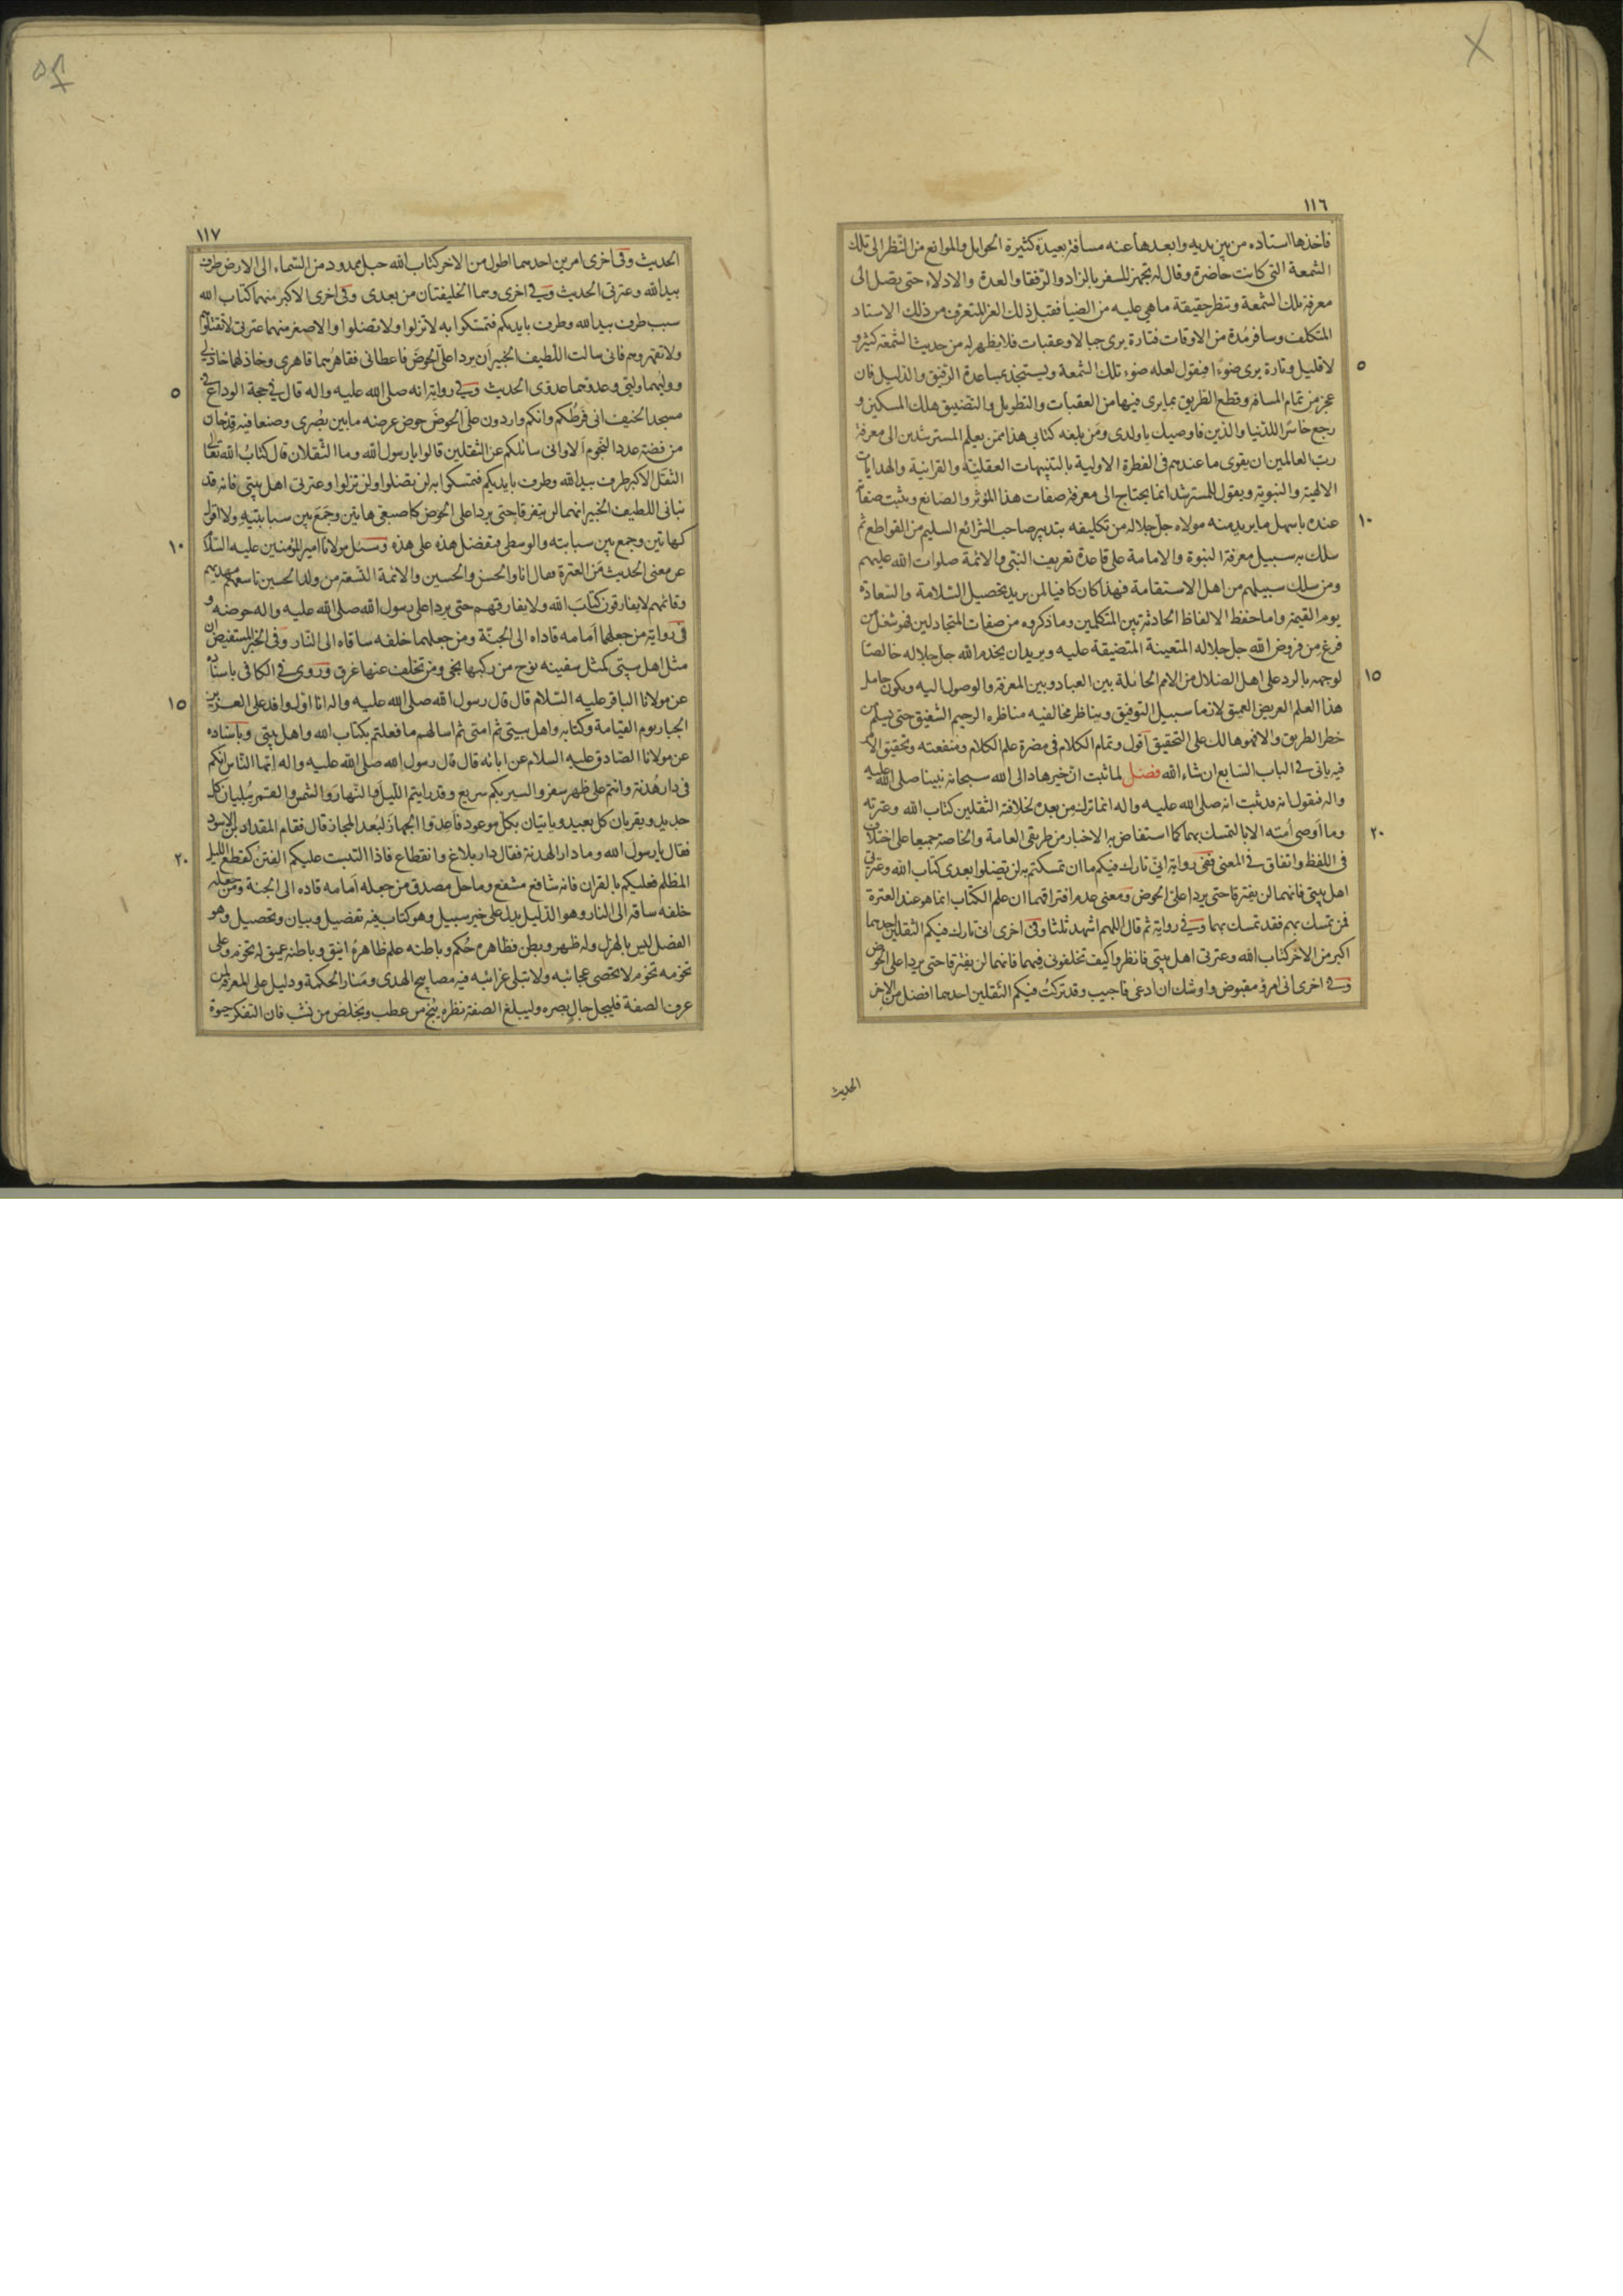 ١١٦
فاخذها استاده من بين يديه وابعدها عنه مسافة بعيدة كثيرة الحوايل والموانع من النظر الى تلك
الشمعة التي كانت حاضرة وقال له تجهز للسفر بالزاد والرفقا والعدة والادلاء حتى يصل الى
معرفة تلك الشمعة وتنظر حقيقة ما هي عليه من الضيا فقبل ذلك الغر المتعرف من ذلك الاستاد
المتكلف وسافر مدة من الاوقات فتارة يرى جبالا وعقبات فلا يظهر له من حديث الشمعة كثير و
لا قليل وتارة يرى ضوءا فيقول لعله ضوء تلك الشمعة ويستنجد بمساعدة الرفيق والدليل فان
٥
عجز من تمام المسافة وقطع الطريق بما يرى فيها من العقبات والتطويل والتضييق هلك المسكين و
رجع خاسرا للدنيا والدين فاوصيك يا ولدي ومن بلغه كتابي هذا ممن يعلم المسترشدين الى معرفة
رب العالمين ان يقوى ما عندهم في الفطرة الاولية بالتنبيهات العقلية والقرانية والهدايات
الالهية والنبوية ويقول للمسترشد انما يحتاج الى معرفة صفات هذا المؤثر والصانع ويثبت صفاته
عنده باسهل ما يريد منه مولاه جل جلاله من تكليفه بتدبير صاحب الشرائع السليم من القواطع ثم
١٠
سلك به سبيل معرفة النبوة والامامة على قاعدة تعريف النبي والائمة صلوات الله عليهم
ومن سلك سبيلهم من اهل الاستقامة فهذا كان كافيا لمن يريد تحصيل السلامة والسعادة
يوم القيمة واما حفظ الالفاظ الحادثة بين المتكلمين وما ذكروه من صفات المتجادلين فهو شغل من
فرغ من فروض الله جل جلاله المتعينة المتضيقة عليه ويريد ان يخدم الله جل جلاله خالصا
لوجهه بالرد على اهل الضلال من الامم الحائلة بين العباد وبين المعرفة والوصول اليه ويكون حامل
١٥
هذا العلم العريض العميق لازما سبيل التوفيق ويناظر مخالفيه مناظرة الرحيم الشفيق حتى يسلم من
خطر الطريق والا فهو هالك على التحقيق اقول وتمام الكلام في مضرة علم الكلام ومنفعته وتحقيق الامر
فيه ياتي في الباب السابع ان شاء الله فصل لما ثبت ان خيرهاد الى الله سبحانه نبينا صلى الله عليه
واله فنقول انه قد ثبت انه صلى الله عليه واله انما ترك من بعده لخلافته الثقلين كتاب الله وعترته
وما اوصى امته الا بالتمسك بهما كما استفاض به الاخبار من طريقي العامة والخاصة جميعا على اختلاف
٢٠
في اللفظ واتفاق في المعنى ففي رواية اني تارك فيكم ما ان تمسكتم به لن تضلوا بعدي كتاب الله وعترتي
اهل بيتي فانهما لن يفترقا حتى يردا على الحوض ومعنى عدم افتراقهما ان علم الكتاب انما هو عند العترة
فمن تمسك بهم فقد تمسك بهما وفي رواية ثم قال اللهم اشهد ثلثا وفي اخرى اني تارك فيكم الثقلين احدهما
اكبر من الاخر كتاب الله وعترتي اهل بيتي فانظروا كيف تخلفوني فيهما فانهما لن يفترقا حتى يردا على الحوض
وفي اخرى اني امرؤ مقبوض واوشك ان ادعى فاجيب وقد تركت فيكم الثقلين احدهما افضل من الاخر
الحديث
١١٧
الحديث وفي اخرى امرين احدهما اطول من الاخر كتاب الله حبل ممدود من السماء الى الارض طرف
بيد الله وعترتي الحديث وفي اخرى وهما الخليفتان من بعدي وفي اخرى الاكبر منهما كتاب الله
سبب طرف بيد الله وطرف بايديكم فتمسكوا به لا تزلوا ولا تضلوا والاصغر منهما عترتي لا تقتلوهم
ولا تقهروهم فاني سالت اللطيف الخبير ان يردا على الحوض فاعطاني فقاهرهما قاهري وخاذلهما خاذلي
ووليهما وليي وعدوهما عدوي الحديث وفي رواية انه صلى الله عليه واله قال في حجة الوداع في
٥
مسجد الخيف اني فرطكم وانكم واردون على الحوض حوض عرضه ما بين بصرى وصنعا فيه قدحان
من فضة عدد النجوم الا واني سائلكم عن الثقلين قالوا يا رسول الله وما الثقلان قال كتاب الله تعالى
الثقل الاكبر طرف بيد الله وطرف بايديكم فتمسكوا به لن تضلوا ولن تزلوا وعترتي اهل بيتي فانه قد
نباني اللطيف الخبير انهما لن يتفرقا حتى يردا على الحوض كاصبعي هاتين وجمع بين سبابتيه ولا اقول
كهاتين وجمع بين سبابته والوسطى فتفضل هذه على هذه وسئل مولانا امير المؤمنين عليه السلام
١٠
عن معنى الحديث من العترة فقال انا والحسن والحسين والائمة التسعة من ولد الحسين تاسعهم مهديهم
وقائمهم لا يفارقون كتاب الله ولا يفارقهم حتى يردا على رسول الله صلى الله عليه واله حوضه و
في رواية من جعلهما امامه قاداه الى الجنة ومن جعلهما خلفه ساقاه الى النار وفي الخبر المستفيض ان
مثل اهل بيتي كمثل سفينه نوح من ركبها نجى ومن تخلف عنها غرق وروى في الكافي باسناده
عن مولانا الباقر عليه السلام قال قال رسول الله صلى الله عليه واله انا اول وافد على العزيز
١٥
الجبار يوم القيامة وكتابه واهل بيتي ثم امتي ثم اسالهم ما فعلتم بكتاب الله واهل بيتي وباسناده
عن مولانا الصادق عليه السلام عن ابائه قال قال رسول الله صلى الله عليه واله ايها الناس انكم
في دار هدنة وانتم على ظهر سفر والسير بكم سريع وقد رايتم الليل والنهار والشمس والقمر يبليان كل
جديد ويقربان كل بعيد وياتيان بكل موعود فاعدوا الجهاز لبعد المجاز قال فقام المقداد بن الاسود
فقال يا رسول الله وما دار الهدنة فقال دار بلاغ وانقطاع فاذا التبست عليكم الفتن كقطع الليل
٢٠
المظلم فعليكم بالقران فانه شافع مشفع وماحل مصدق من جعله امامه قاده الى الجنة ومن جعله
خلفه ساقه الى النار وهو الدليل يدل على خير سبيل وهو كتاب فيه تفصيل وبيان وتحصيل وهو
الفصل ليس بالهزل وله ظهر وبطن فظاهره حكم وباطنه علم ظاهره انيق وباطنه عميق له تخوم وعلى
تخومه تخوم لا تحصى عجائبه ولا تبلى غرائبه فيه مصابيح الهدى ومنار الحكمة ودليل على المعرفة لمن
عرف الصفة فليجل جال بصره وليبلغ الصفة نظره ينج من عطب ويخلص من نشب فان التفكر حيوة